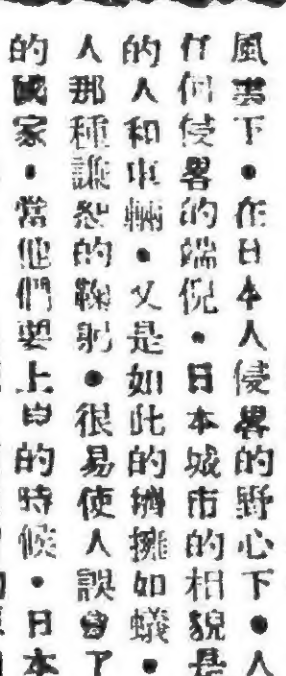 風雲下•在日本人侵畧的野心下•人
任何侵畧的端倪•日本城市的相貌是
的人和車輛•又是如此的稠擁如蟻•
人那種謙恕的鞠躬•很易使人誤會了
的國家•當他們要上岸的時候•日本